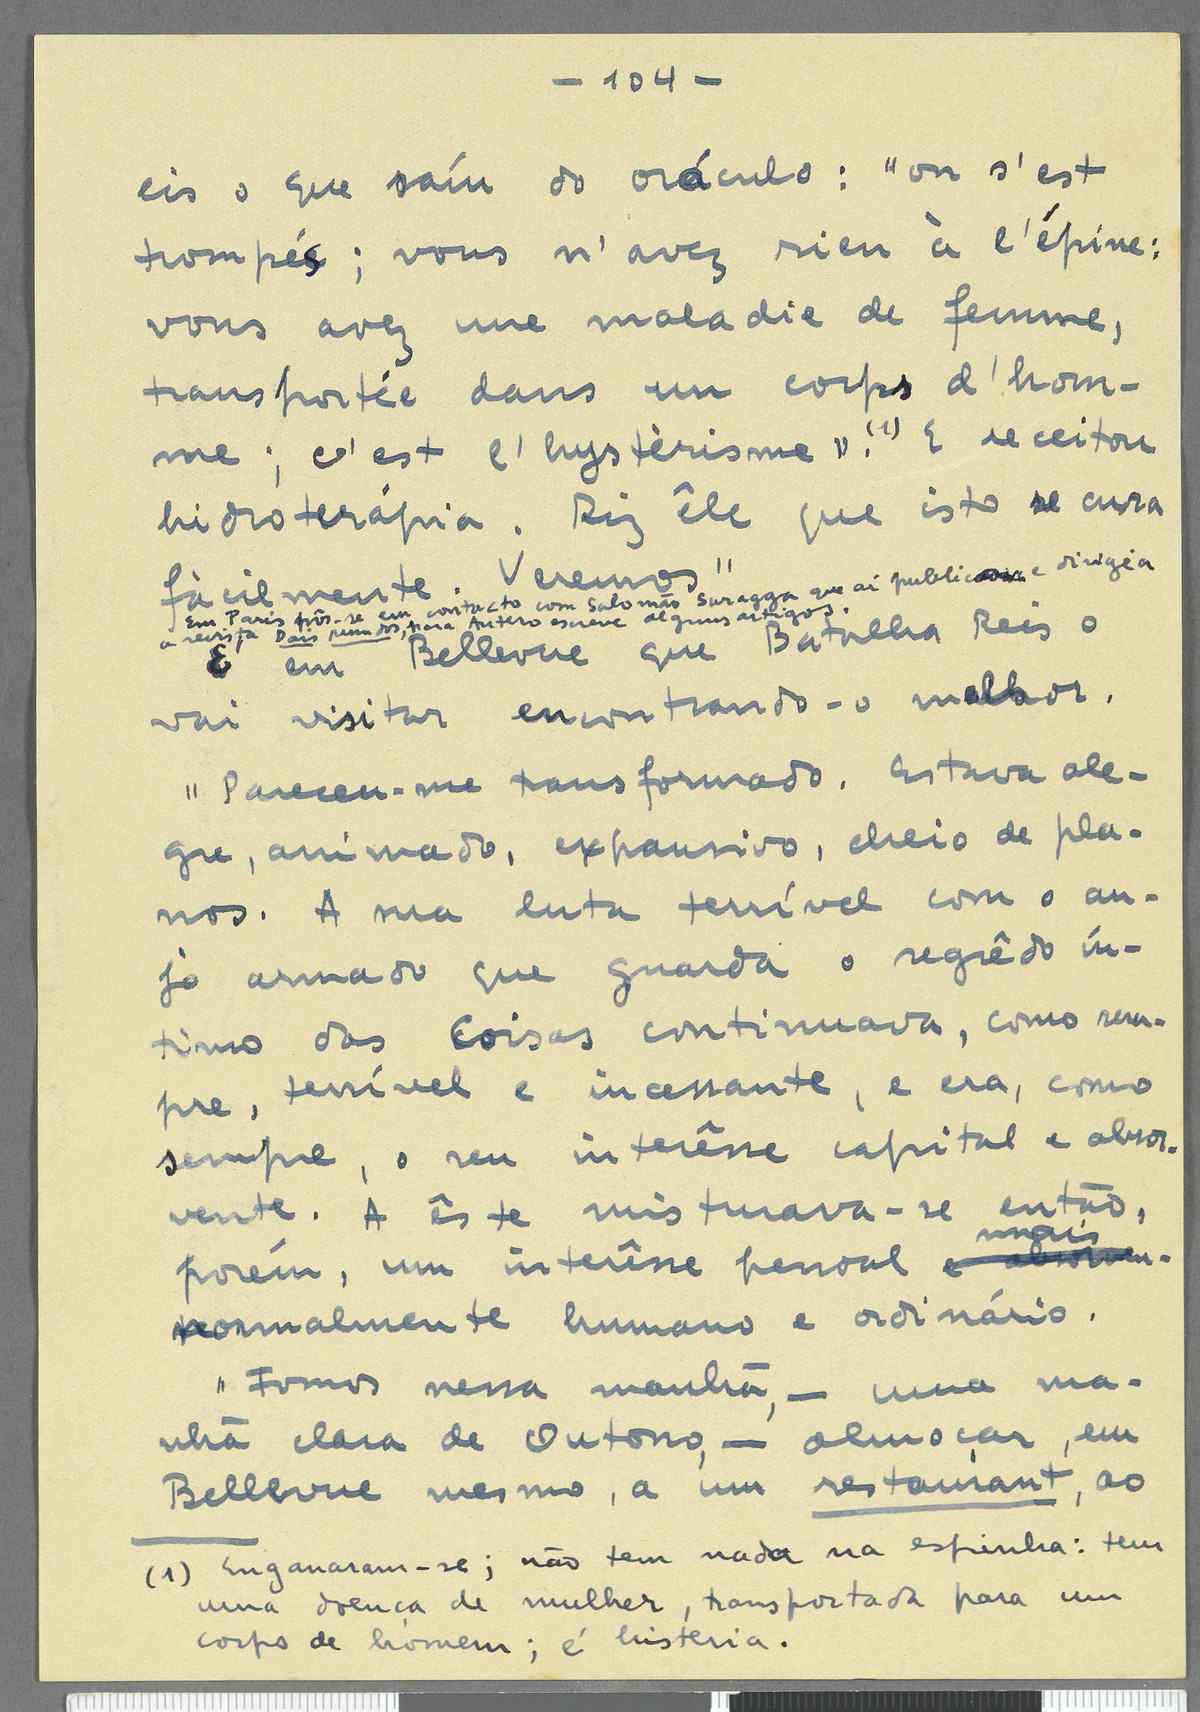 — 104 —
eis o que saíu do oráculo: "on s'est
trompés; vous n'avez rien à l'épine:
vous avez une maladie de femme,
transportée dans un corps d'hom-
me; c'est l'hystèrisme".(1) E receitou
hidroterápia. Diz êle que isto se cura
fàcilmente. Veremos"
Em Paris pôs-se em contacto com Salomão Saragga que aí publicava e dirigia
a revista Dois mundos, para Antero escreve alguns artigos.
É em Bellevue que Batalha Reis o
vai visitar encontrando-o melhor.
"Pareceu-me transformado. Estava ale-
gre, animado, expansivo, cheio de pla-
nos. A sua luta terrível com o an-
jo armado que guarda o segrêdo ín-
timo das Coisas continuava, como sem-
pre, terrível e incessante, e era, como
sempre, o seu interêsse capital e absor-
vente. A êste misturava-se então,
mais
porém, um interêsse pessoal e
normalmente humano e ordinário.
"Fomos nessa manhã, — uma ma-
nhã clara de Outono, — almoçar, em
Bellevue mesmo, a um restaurant, ao
(1) Enganaram-se; não tem nada na espinha: tem
uma doença de mulher, transportada para um
corpo de homem; é histeria.